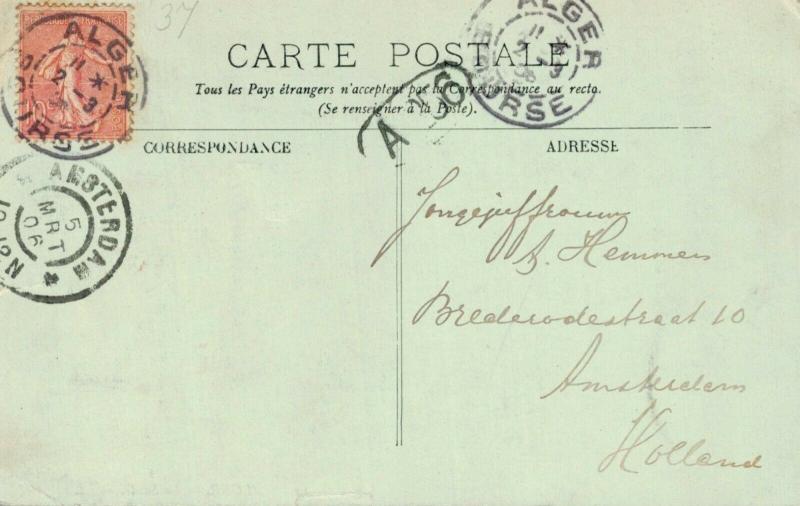 37
RÉPUBLIQUE FRANÇAISE
ALGER
BOURSE
11 *
2 -3
ALGER
BOURSE
11 *
2 -3
CARTE POSTALE
Tous les Pays étrangers n'acceptent pas la Correspondance au recto.
(Se renseigner à la Poste).
A
CORRESPONDANCE
ADRESSE
AMSTERDAM
5
MRT
06
12N
Jongejuffrouw
Hemmers
Brederodestraat 10
Amsterdam
Holland